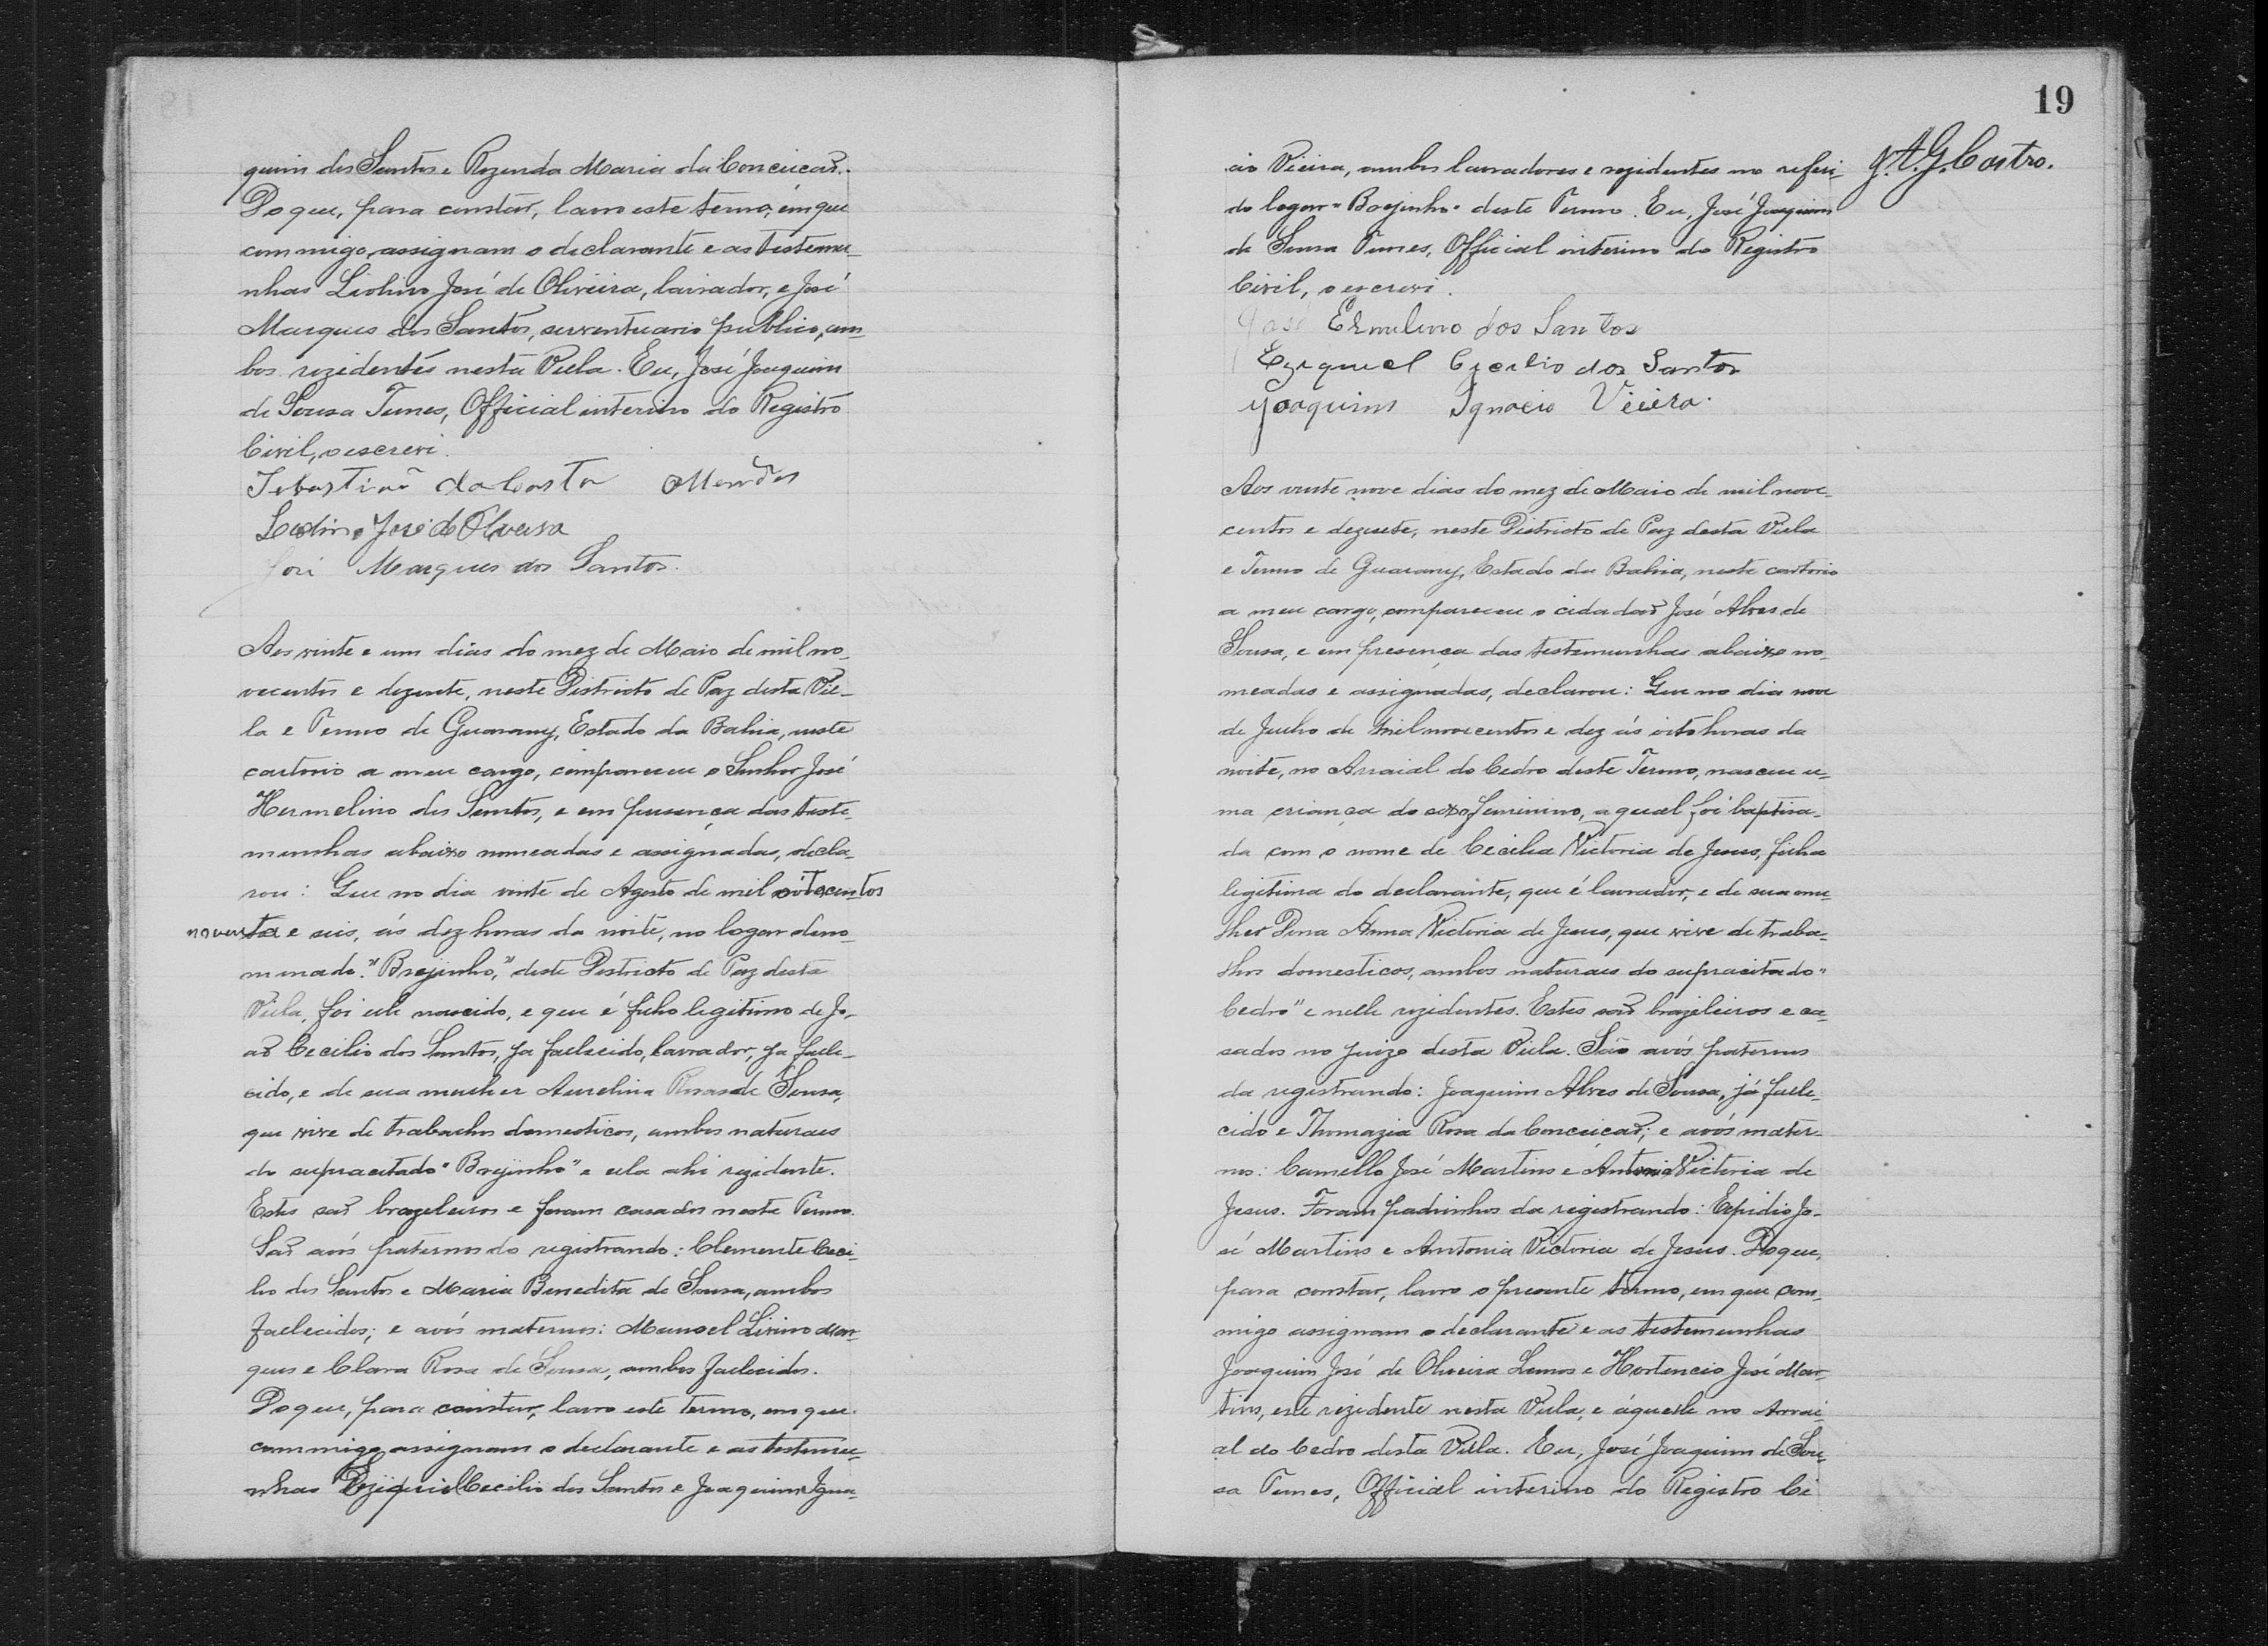 quim dos Santos e Rozenda Maria da Conceicaõ.
Do que, para constar, lavro este termo, em que
commigo, assignam o declarante e as testemu-
nhas Liolino José de Oliveira, lavrador, e José
Marques dos Santos, serventuario publico, am-
bos rezidentes nesta Villa. Eu, José Joaquim
de Sousa Tunes, Official interino do Registro
Civil, o escrevi.
Sebastiaõ da Costa Mendes
Liolino José de Olveira
José Marques dos Santos.
Aos vinte e um dias do mez de Maio de mil no-
vecentos e dezesete, neste Districto de Paz desta Vil-
la e Termo de Guarany, Estado da Bahia, neste
cartorio a meu cargo, compareceu o Senhor José
Hermelino dos Santos, e em presença das teste-
munhas abaixo nomeadas e assignadas, decla-
rou: Que no dia vinte de Agosto de mil oitocentos
noventa e seis, ás dez horas da noite, no logar deno-
minado "Brejinho," deste Districto de Paz desta
Villa, foi elle nascido, e que é filho legitimo de Jo-
aõ Cecilio dos Santos, ja fallecido, lavrador, ja falle-
cido, e de sua mulher Aurelina Rosa de Sousa,
que vive de trabalhos domesticos, ambos naturaes
do supracitado "Brejinho" e ella ahi rezidente.
Estes saõ brazileiros e foram casados neste Termo.
Saõ avós paternos do registrando: Clemente Ceci-
lio dos Santos e Maria Benedita de Sousa, ambos
fallecidos; e avós maternos: Manoel Livino Mar-
ques e Clara Rosa de Sousa, ambos fallecidos.
Do que, para constar, lavro este termo, em que
commigo assignam o declarante e as testemu-
nhas Ezequiel Cecilio dos Santos e Joaquim Igna-
19
J. A. G. Castro.
cio Vieira, ambos lavradores e rezidentes no referi-
do logar "Brejinho" deste Termo. Eu, José Joaquim
de Sousa Tunes, Official interino do Registro
Civil, o escrevi.
José Ermelino dos Santos
Ezequiel Cecilio dos Santos
Joaquim Ignacio Vieira.
Aos vinte nove dias do mez de Maio de mil nove-
centos e dezesete, neste Districto de Paz desta Villa
e Termo de Guarany, Estado da Bahia, neste cartorio
a meu cargo, compareceu o cidadaõ José Alves de
Sousa, e em presença das testemunhas abaixo no-
meadas e assignadas, declarou: Que no dia nove
de Julho de mil novecentos e dez ás oito horas da
noite, no Arraial do Cedro deste Termo, nasceu u-
ma criança do sexo feminino, a qual foi baptisa-
da com o nome de Cecilia Victoria de Jesus, filha
legitima do declarante, que é lavrador, e de sua mu-
lher Dona Anna Victoria de Jesus, que vive de traba-
lhos domesticos, ambos naturaes do supracitado "
Cedro" e nelle rezidentes. Estes saõ brazileiros e ca-
sados no juizo desta Villa. São avós paternos
da registrando: Joaquim Alves de Sousa, já falle-
cido e Thomazia Rosa da Conceicaõ; e avós mater-
nos: Camello José Martins e Antonia Victoria de
Jesus. Foram padrinhos da registrando: Elpidio Jo-
sé Martins e Antonia Victoria de Jesus. Do que,
para constar, lavro o presente termo, em que com-
migo assignam o declarante e as testemunhas
Joaquim José de Oliveira Lemos e Hortencio José Mar-
tins, este rezidente nesta Villa, e áquelle no Arrai-
al do Cedro desta Villa. Eu, José Joaquim de Sou-
sa Tunes, Official interino do Registro Ci